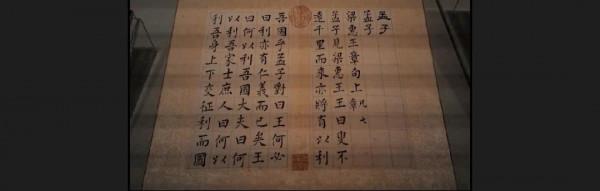 孟子
孟子
梁惠王章句上 凡七章
孟子見梁惠王王曰叟不
遠千里而來亦將有以利
吾國乎孟子對曰王何必
曰利亦有仁義而已矣王
曰何以利吾國大夫曰何
以利吾家士庶人曰何以
利吾身上下交征利而國